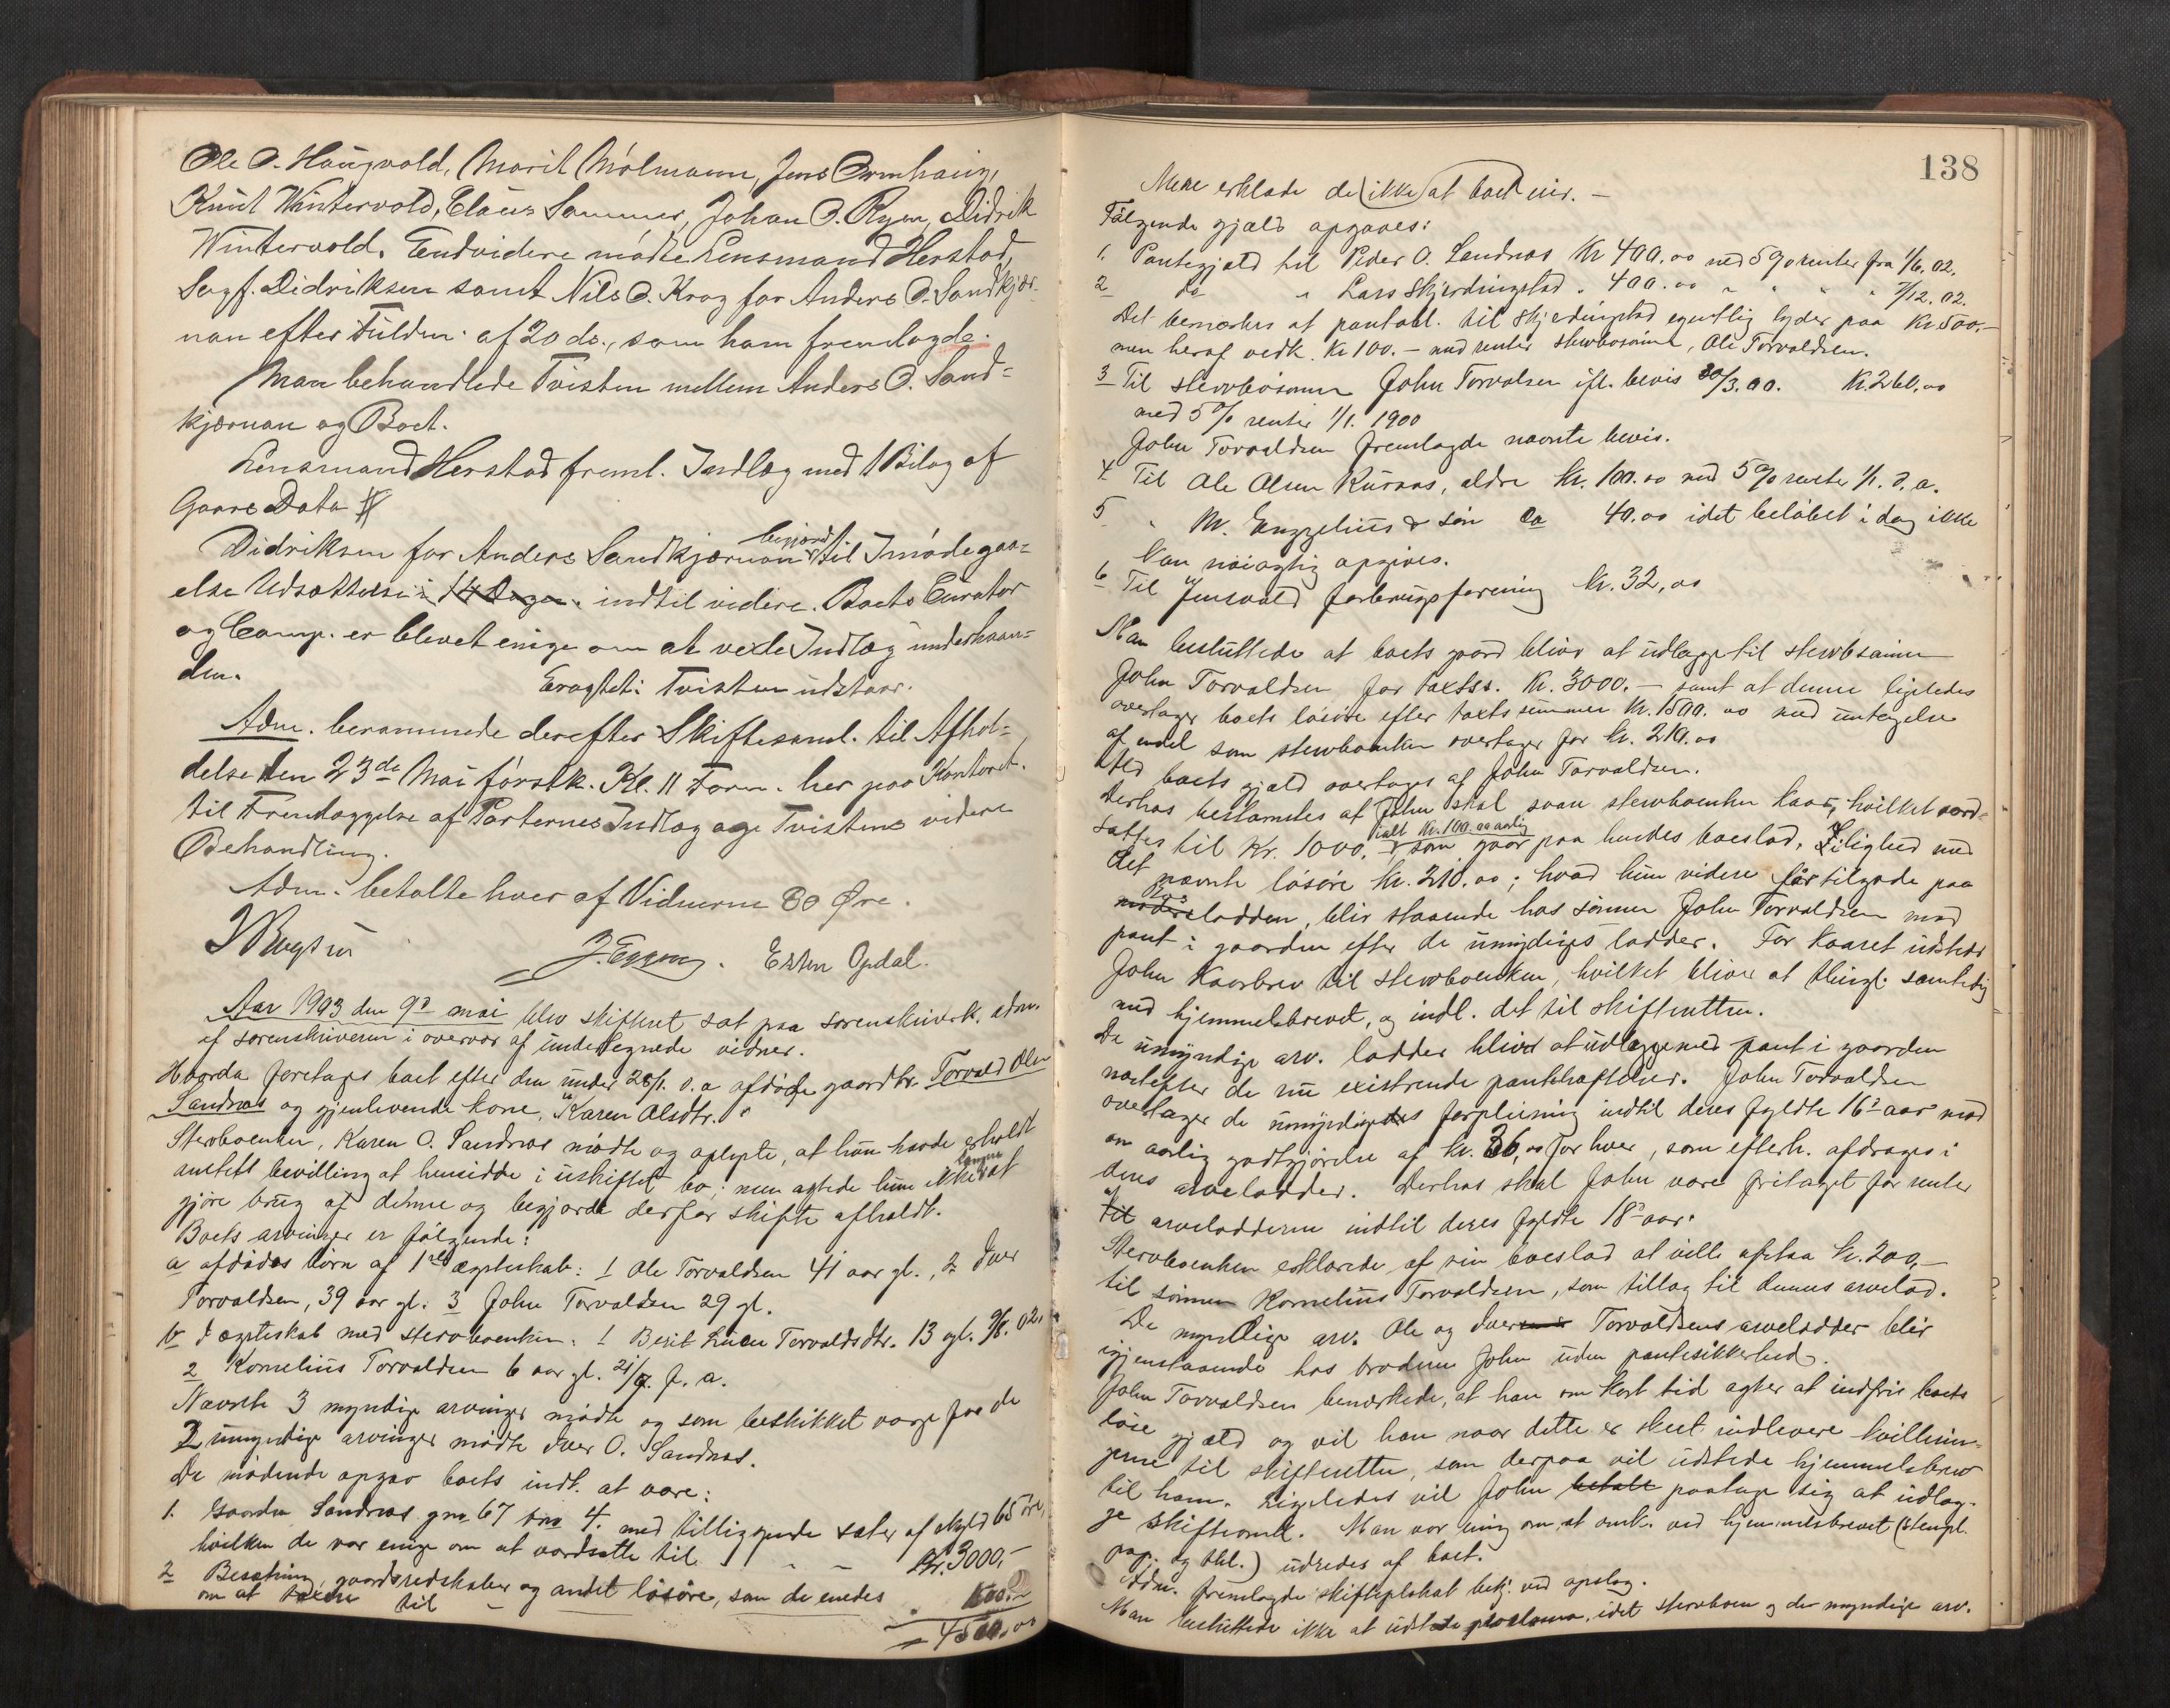 Ole O. Haugvold, Marit Mölmann, Jens Ormhaug,
Knut Wintervold, Claus Sommer, Johan O. Ryen, Didrik
Wintervold. Endvidere mödte Lensmand Herstad,
Sagf. Didriksen samt Nils O. Krog for Anders O. Sandkjær-
nan efter Fuldm. af 20 ds., som han fremlagde.
Man behandlede Tvisten mellem Anders O. Sand-
kjærnan og Boet.
Lensmand Herstad freml. Indlæg med 1 Bilag af
Gaars Dato #
Didriksen for Anders Sandkjærnan begjærd. til Imödegaa-
else Udsættelse i 14 Dage. indtil videre. Boets Curator
og Comp. er blevet enige om at vexle Indlæg underhaan-
den. Eragtet: Tvisten udstaar.
Adm. berammede derefter Skiftesaml. til Afhol-
delse den 23de Mai förstk. Kl. 11 Form. her paa Kontoret.
til Fremlæggelse af Parternes Indlæg og Tvistens videre
Behandling.
Adm. betalte hver af Vidnerne 80 Øre.
J. Eggen. Esten Opdal.
Aar 1903 den 9de mai blev skifteret sat paa sorenskriverk. adm.
af sorenskriveren i overvær af undertegnede vidner.
Hvorda foretages boet efter den under 28/1. d. a afdöde gaardbr. Torvald Olsen
Sandnæs og gjenlevende kone, Karen Olsdtr.
Stervboenken, Karen O. Sandnæs mödte og oplyste, at hun havde erholdt
amtets bevilling at hensidde i uskiftet bo; men agtede hun ikke længere at
gjöre brug af denne og begjærde derfor skifte afholdt.
Boets arvinger er fölgende:
a afdödes börn af 1ste ægteskab: 1 Ole Torvaldsen 41 aar gl., 2 Iver
Torvaldsen, 39 aar gl. 3 John Torvaldsen 29 gl.
b I ægteskab med stervboenken: 1 Berit Lucie Torvaldsdtr. 13 gl. 02.
2 Kornelius Torvaldsen 6 aar gl. f. a.
Nævnte 3 myndige arvinger mödte og som beskikket værge for de
2 umyndige arvinger mödte Iver O. Sandnæs.
De mödende opgav boets indt. at være:
1. Gaarden Sandnæs gno 67 bno 4. med tilliggende sæter af skyld 65 öre,
hvilken de var enige om at værdsætte til - - Kr. 3000,-
2 Besætning, gaardsredskaber og andet lösöre, som de enedes
om at taxere til - 1500.-
= 4500.00
138
Mere erklæde de ikke at boet eier. -
Fölgende gjæld opgaves:
1. Pantegjæld til Peder O. Sandnæs Kr 400.00 med 5% renter fra 1/6. 02.
2 do " Lars Skjerdingstad " 400.00 " " " " 7/12. 02.
Det bemærkes at pantobl. til Skjerdingstad egentlig lyder paa Kr. 500.-
men heraf vedk. Kr 100.- med renter stervbosönnen, Ole Torvaldsen.
3 Til stervbosönnen John Torvalsen ifl. bevis 30/3. 00. Kr. 260.00
med 5% renter 1/1. 1900
John Torvaldsen fremlagde nævnte bevis.
4 Til Ole Olsen Kuraas, ældre Kr. 100.00 med 5% rente 1/1. d. a.
5 " M. Engzelius & sön ca 40.00 idet belöbet i dag ikke
kan nöiagtig opgives.
6 Til Jensvold forbrugsforening Kr. 32,00
Man besluttede at boets gaard bliver at udlægge til stervbsönnen
John Torvaldsen for taxtss. Kr. 3000.- samt at denne ligeledes
overtager boets lösöre efter taxtssummen Kr. 1500.00 med undtagelse
af endel som stervboenken overtager for Kr. 210.00
Al boets gjæld overtages af John Torvaldsen.
Derhos bestemtes at John skal svare stervboenken kaar, hvilket værd-
sættes til Kr. 1000.- ialt Kr. 100.00 aarlig som gaar paa hendes boeslod. I lighed med
det nævnte lösöre Kr. 210.00; hvad hun videre får tilgode paa
boesladden, blir staaende hos sönnen John Torvaldsen mod
pant i gaarden efter de umyndiges lodder. For kaaret udsteder
John Kaarbrev til stervboenken, hvilket bliver at thingl. samtidig
med hjemmelsbrevet, og indl. det til skifteretten.
De umyndige arv. lodder bliver at udlægge med pant i gaarden
næstefter de nu existrende pantehæftelser. John Torvaldsen
overtager de umyndiges forpleining indtil deres fyldte 16de aar mod
en aarlig godtgjörelse af Kr. 36,00 for hver, som efterh. afdrages i
deres arvelodder. Derhos skal John være fritaget for renter
af til arvelodderne indtil deres fyldte 18de aar.
Stervboenken erklærede af sin boeslod at ville afstaa Kr. 200,-
til sönnen Kornelius Torvaldsen, som tillæg til dennes arvelod.
De myndige arv. Ole og Iver Torvaldsens arvelodder blir
igjenstaaende hos broderen John uden pantesikkerhed.
John Torvaldsen bemærkede, at han om kort tid agter at indfrie boets
löse gjæld og vil han naar dette er skeet indlevere kvitterin-
gerne til skifteretten, som derpaa vil udstede hjemmelsbrev
til ham. Ligeledes vil John betale paatage sig at udlæg-
ge skifteomk. Man var enig om at omk. ved hjemmelsbrevet (stempl.
pap. og thl.) udredes af boet.
Adm. fremlagde skifteplakat bekj. ved opslag.
Man besluttede ikke at udstede proclama, idet stervboen og de myndige arv.